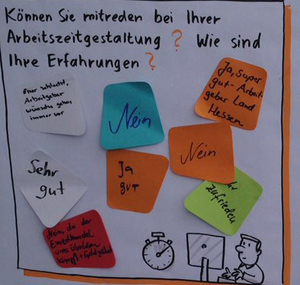 Können Sie mitreden bei Ihrer
Arbeitszeitgestaltung? Wie sind
Ihre Erfahrungen?
Eher schlecht,
Arbeitgeber
wünsche gehen
immer vor
Nein
Ja, super
gut - Arbeit-
geber Land
Hessen
Sehr
gut
Ja
gut
Nein
zufrieden
Nein, da der
Einzelhandel